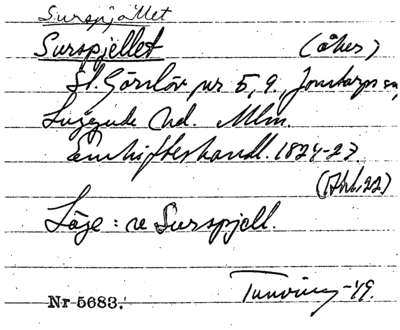 Surspjället
Surspjellet (åker)
St. Görslöv nr 5, 9, Jonstorps sn,
Luggude hd. Mlm.
Enskifteshandl. 1824-27.
(Akt. 22)
Läge: se Surspjell.
Nr 5683. Tunving -49.